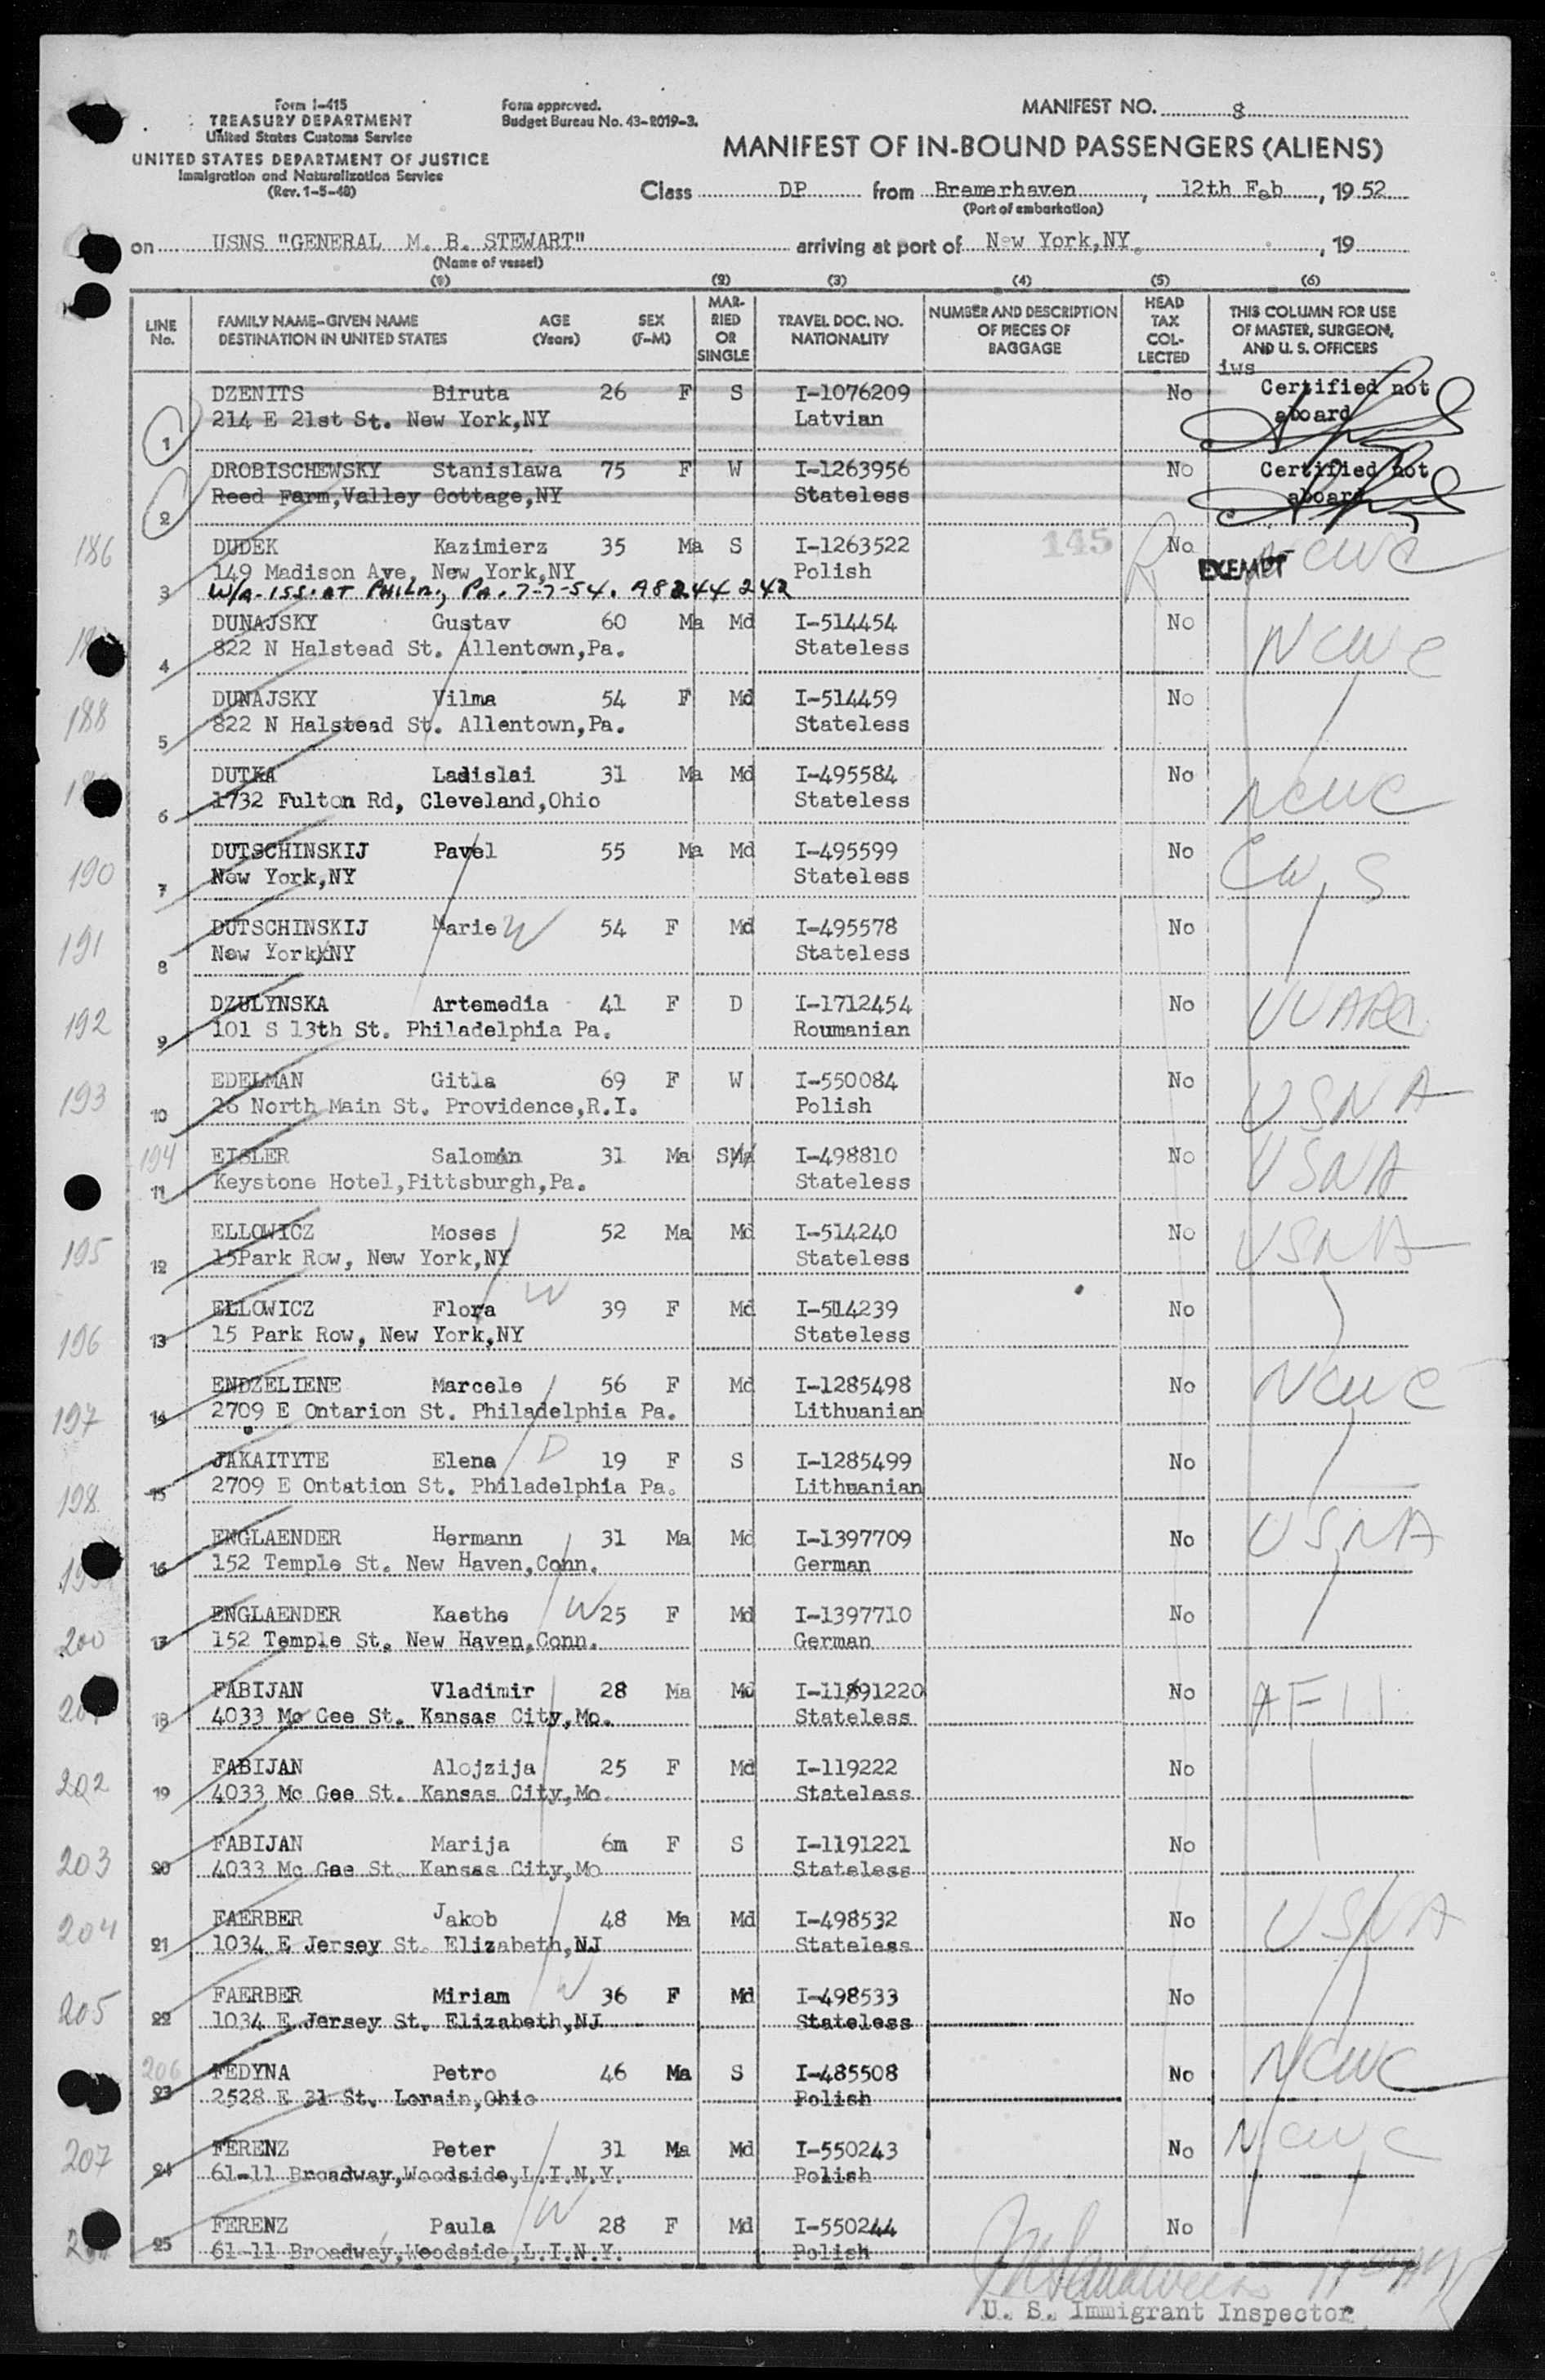 Form I-415
TREASURY DEPARTMENT
United States Customs Service
UNITED STATES DEPARTMENT OF JUSTICE
Immigration and Naturalization Service
(Rev. 1-5-48)
Form approved.
Budget Bureau No. 43-R019-3.
MANIFEST NO. 8
MANIFEST OF IN-BOUND PASSENGERS (ALIENS)
Class DP from Bremerhaven, 12th Feb, 1952
(Port of embarkation)
on USNS "GENERAL M. B. STEWART" arriving at port of New York,NY., 19
(Name of vessel)
(1) (2) (3) (4) (5) (6)
LINE No. FAMILY NAME-GIVEN NAME DESTINATION IN UNITED STATES AGE (Years) SEX (F-M) MARRIED OR SINGLE TRAVEL DOC. NO. NATIONALITY NUMBER AND DESCRIPTION OF PIECES OF BAGGAGE HEAD TAX COLLECTED THIS COLUMN FOR USE OF MASTER, SURGEON, AND U. S. OFFICERS
iws
DZENITS Biruta 26 F S I-1076209 No Certified not
1 214 E 21st St. New York,NY Latvian aboard
DROBISCHEWSKY Stanislawa 75 F W I-1263956 No Certified not
2 Reed Farm,Valley Cottage,NY Stateless aboard
186 DUDEK Kazimierz 35 Ma S I-1263522 145 No NCWC
149 Madison Ave New York,NY Polish EXEMPT
3 W/A-ISS. AT PHILA., PA. 7-7-54. A8244242
DUNAJSKY Gustav 60 Ma Md I-514454 No NCWC
4 822 N Halstead St. Allentown,Pa. Stateless
188 DUNAJSKY Vilma 54 F Md I-514459 No
5 822 N Halstead St. Allentown,Pa. Stateless
DUTKA Ladislai 31 Ma Md I-495584 No NCWC
6 1732 Fulton Rd, Cleveland,Ohio Stateless
190 DUTSCHINSKIJ Pavel 55 Ma Md I-495599 No CWS
7 New York,NY Stateless
191 DUTSCHINSKIJ Marie W 54 F Md I-495578 No
8 New York,NY Stateless
192 DZULYNSKA Artemedia 41 F D I-1712454 No UUARC
9 101 S 13th St. Philadelphia Pa. Roumanian
193 EDELMAN Gitla 69 F W I-550084 No USNA
10 26 North Main St. Providence,R.I. Polish
194 EISLER Salomon 31 Ma S I-498810 No USNA
11 Keystone Hotel,Pittsburgh,Pa. Stateless
195 ELLOWICZ Moses 52 Ma Md I-514240 No USNA
12 15Park Row, New York,NY Stateless
196 ELLOWICZ Flora W 39 F Md I-514239 No
13 15 Park Row, New York,NY Stateless
197 ENDZELIENE Marcele 56 F Md I-1285498 No NCWC
14 2709 E Ontarion St. Philadelphia Pa. Lithuanian
198 JAKAITYTE Elena D 19 F S I-1285499 No
15 2709 E Ontation St. Philadelphia Pa. Lithuanian
ENGLAENDER Hermann 31 Ma Md I-1397709 No USNA
16 152 Temple St. New Haven,Conn. German
200 ENGLAENDER Kaethe W 25 F Md I-1397710 No
17 152 Temple St. New Haven,Conn. German
FABIJAN Vladimir 28 Ma Md No AFII
18 4033 Mc Gee St. Kansas City,Mo. Stateless
202 FABIJAN Alojzija 25 F Md I-119222 No
19 4033 Mc Gee St. Kansas City,Mo. Stateless
203 FABIJAN Marija 6m F S I-1191221 No
20 4033 Mc Gee St. Kansas City,Mo Stateless
204 FAERBER Jakob 48 Ma Md I-498532 No USNA
21 1034 E Jersey St. Elizabeth,NJ Stateless
205 FAERBER Miriam W 36 F Md I-498533 No
22 1034 E Jersey St. Elizabeth,NJ Stateless
206 FEDYNA Petro 46 Ma S I-485508 No NCWC
23 2528 E 31 St. Lorain,Ohio Polish
207 FERENZ Peter 31 Ma Md I-550243 No NCWC
24 61-11 Broadway,Woodside,L.I.N.Y. Polish
FERENZ Paula W 28 F Md I-550244 No
25 61-11 Broadway,Woodside,L.I.N.Y. Polish
U. S. Immigrant Inspector